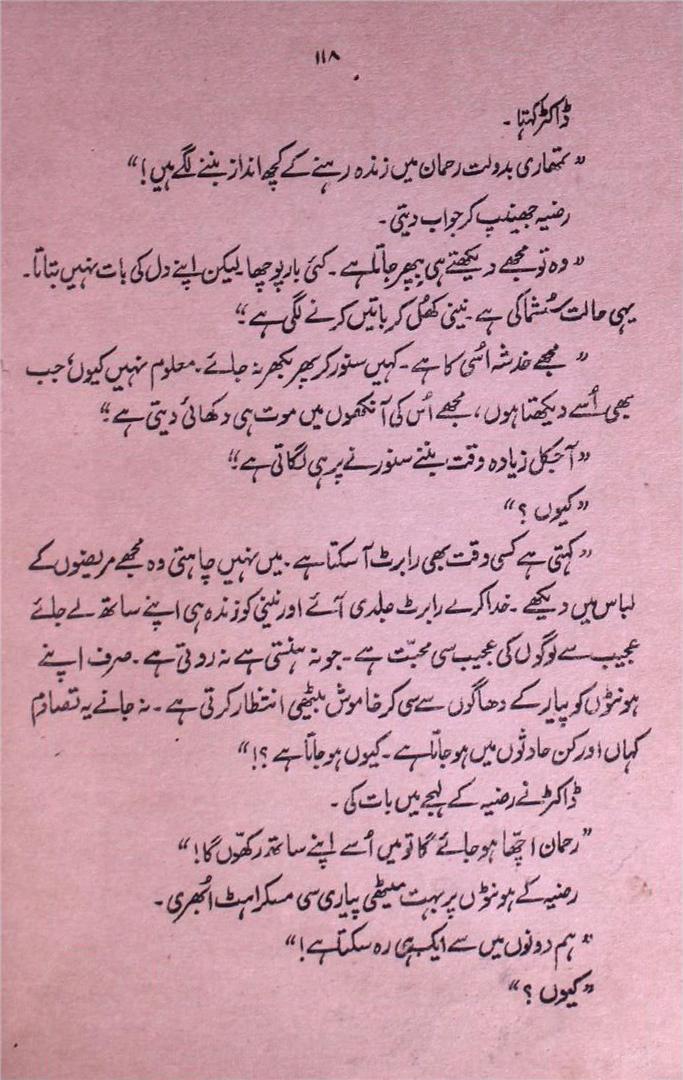 ۱۱۸
ڈاکٹر کہتا۔
”تمھاری بدولت رحمان میں زندہ رہنے کے کچھ انداز بننے لگے ہیں!“
رضیہ جھینپ کر جواب دیتی۔
”وہ تو مجھے دیکھتے ہی بپھر جاتا ہے۔ کئی بار پوچھا لیکن اپنے دل کی بات نہیں بتاتا۔
یہی حالت سُشما کی ہے۔ نینی کھُل کر باتیں کرنے لگی ہے“
”مجھے خدشہ اُسی کا ہے۔ کہیں سنور کر پھر بکھر نہ جائے۔ معلوم نہیں کیوں، جب
بھی اُسے دیکھتا ہوں، مجھے اُس کی آنکھوں میں موت ہی دکھائی دیتی ہے“
”آجکل زیادہ وقت بننے سنورنے پر ہی لگاتی ہے“
”کیوں ؟“
”کہتی ہے کسی وقت بھی رابرٹ آ سکتا ہے۔ میں نہیں چاہتی وہ مجھے مریضوں کے
لباس میں دیکھے۔ خدا کرے رابرٹ جلدی آئے اور نینی کو زندہ ہی اپنے ساتھ لے جائے
عجیب سے لوگوں کی عجیب سی محبّت ہے۔ جو نہ ہنستی ہے نہ روتی ہے۔ صرف اپنے
ہونٹوں کو پیار کے دھاگوں سے سی کر خاموش بیٹھی انتظار کرتی ہے۔ نہ جانے یہ تصادم
کہاں اور کن حادثوں میں ہو جاتا ہے۔ کیوں ہو جاتا ہے ؟!“
ڈاکٹر نے رضیہ کے لہجے میں بات کی۔
”رحمان اچھّا ہو جائے گا تو میں اُسے اپنے ساتھ رکھّوں گا!“
رضیہ کے ہونٹوں پر بہت میٹھی پیاری سی مسکراہٹ اُبھری۔
”ہم دونوں میں سے ایک ہی رہ سکتا ہے!“
”کیوں ؟“